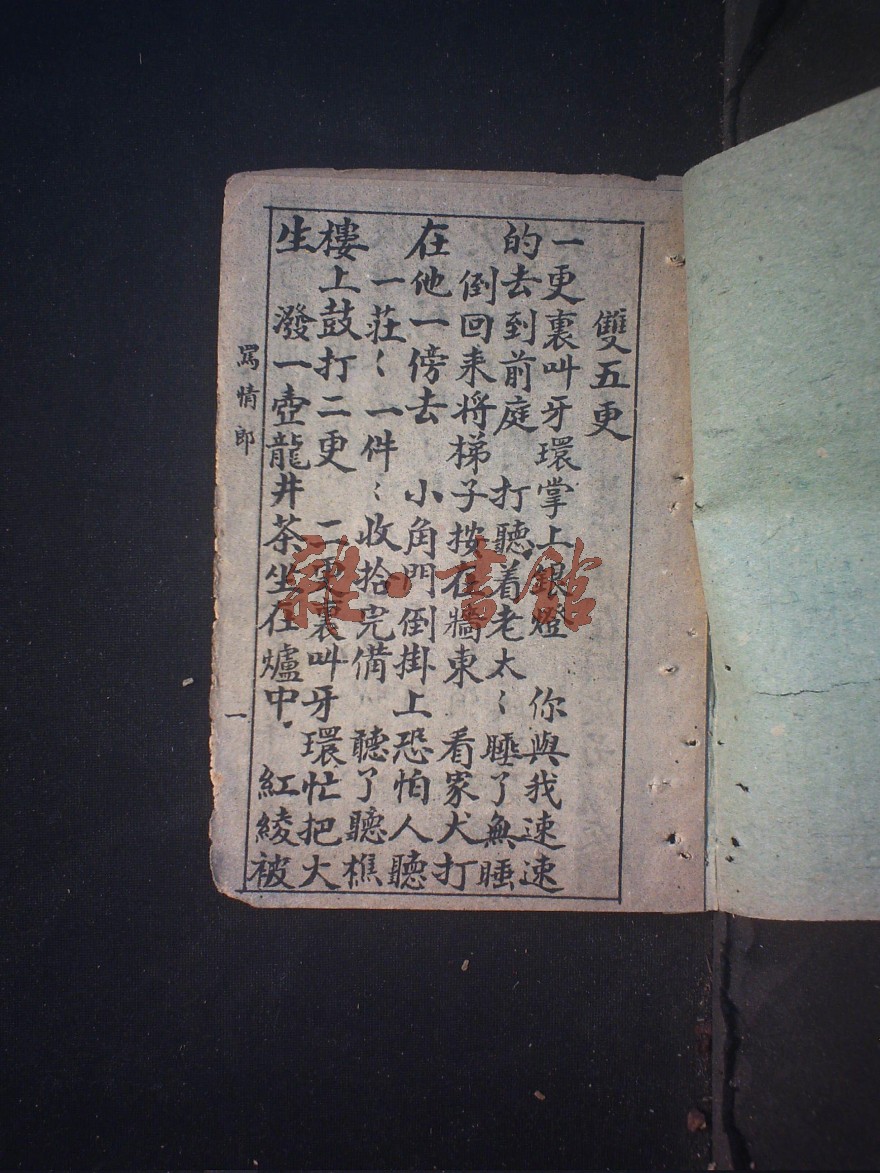 雙五更
一更裏叫牙環掌上銀燈　你與我速速
的去到前庭　打聽着老太〻睡了無睡
倒回来将梯子按在牆東　看家犬打
在他一傍去　小角門倒掛上恐怕人聽
一莊〻一件〻收拾完備　聽了聽樵
樓上鼓打二更　二更裏叫牙環忙把大
生　潑一壺龍井茶坐在爐中　紅綾被
罵情郎　一
雜·書館